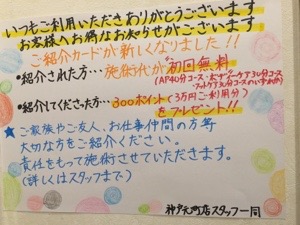 いつもご利用いただきありがとうございます
お客様へお得なお知らせがございます
ご紹介カードが新しくなりました!!
•紹介された方…施術代が初回無料
(AP40分コース・太ももケア30分コース
フットケア30分コースのいずれか)
•紹介してくださった方…300ポイント(3万円ご利用分)
をプレゼント!!
★ご家族やご友人、お仕事仲間の方等
大切な方をご紹介ください。
責任をもって施術させていただきます。
(詳しくはスタッフまで)
神戸元町店スタッフ一同